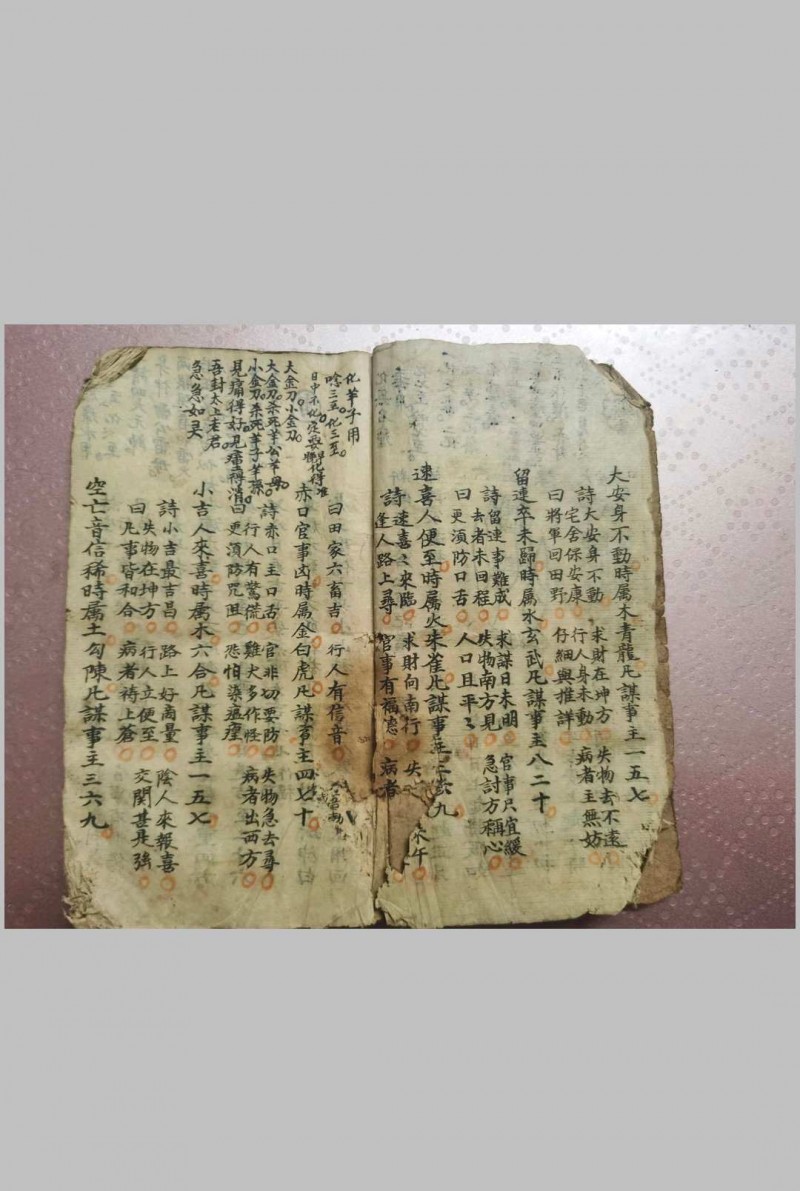 大安身不動時属木青龍凡謀事主一五七
詩大安身不動 求財在坤方 失物去不遠
宅舍保安康 行人身未動 病者主無妨
曰將軍回田野 仔細與推詳
留連卒未歸時属水玄武凡謀事主八二十
詩留連事難成 求謀日未明 官事只宜緩
去者未回程 失物南方見 急討方稱心
曰更須防口舌 人口且平〻
速喜人便至時属火朱雀凡謀事 六九
詩速喜〻來臨 求財向南行 失 未午
逢人路上尋 官事有福德 病者
曰田家六畜吉 行人有信音
化羊子用
唸三至化三至
日中不化定要 化得准
大金刀小金刀
大金刀杀死羊公羊母
小金刀杀死羊子羊孫
見痛得好見 清
吾封太上老君
急急如 天
赤口官事凶時属金白虎凡謀事主四七十
詩赤口主口舌 官非切要防 失物急去尋
行人有驚慌 雞犬多作怪 病者出西方
曰更須防咒诅 恐怕染瘟瘽
小吉人來喜時属木六合凡謀事主一五七
詩小吉最吉昌 路上好商量 陰人來報喜
失物在坤方 行人立便至 交関甚是強
曰凡事皆和合 病者祷上蒼
空亡音信稀時属土勾陳凡謀事主三六九